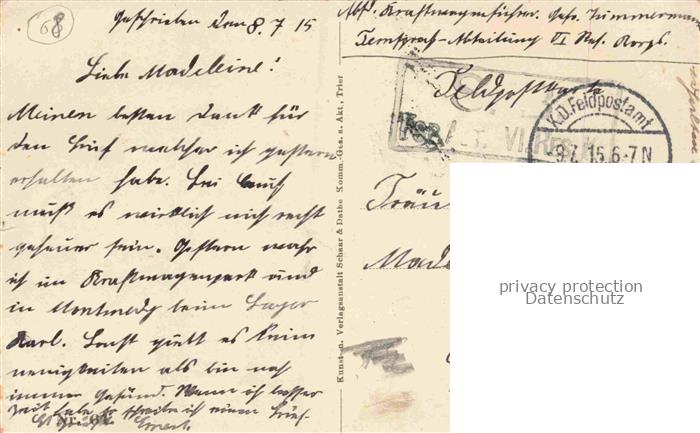 68
Geschrieben den 8. 7 15
Liebe Madeleine!
Meinen besten Dank für
den Brief welcher ich gestern
erhalten habe. Bei Euch
muß es wirklich nich recht
geheuer sein. Gestern wahr
ich im Kraftwagenpark und
in Montmedy beim
Karl. Sonst giebt es keine
neuigkeiten als bin noch
immer Gesund. Wenn ich besser
Zeit habe so schreibe ich einen Brief.
Ernest.
Kunst- u. Verlagsanstalt Schaar & Dathe Komm.-Ges. a. Akt., Trier
Abs. Kraftwagenführer. Gefr. Zimmermann
Fernsprech-Abteilung VI Res. Korps.
Feldpostkarte
K.D. Feldpostamt
9.7.15. 6-7 N
Fräu
Made
privacy protection
Datenschutz